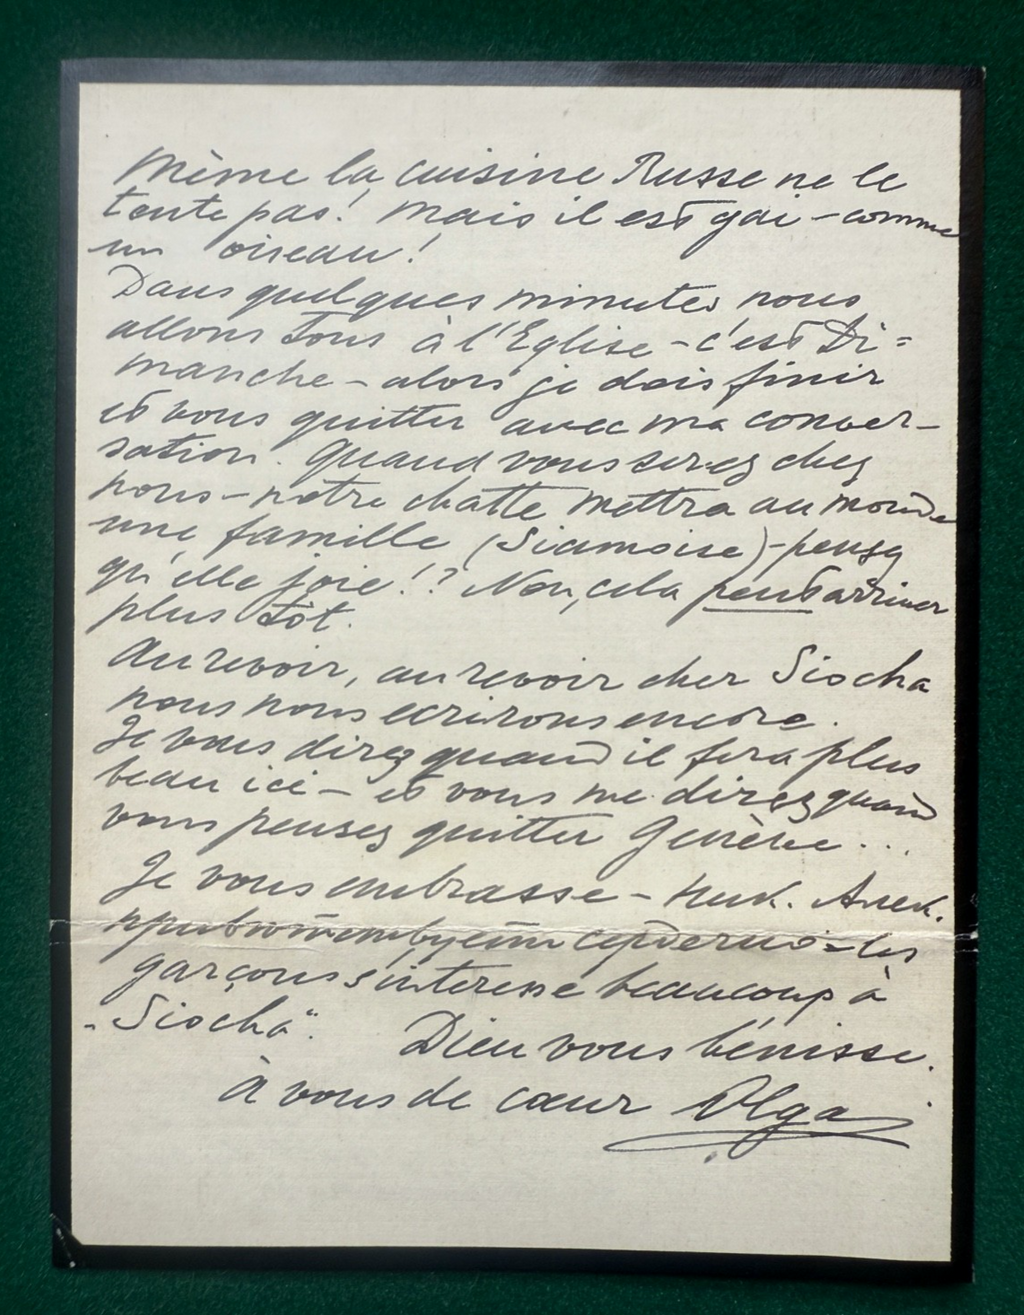 Même la cuisine Russe ne le
tente pas! Mais il est gai – comme
un oiseau!
Dans quelques minutes nous
allons tous à l'Eglise – c'est Di=
manche – alors je dois finir
et vous quitter avec ma conver-
sation. Quand vous serez chez
nous – notre chatte mettra au monde
une famille (Siamoise) – pensez
qu'elle joie!? Non, cela peut arriver
plus tôt.
Au revoir, au revoir cher Siocha
nous nous ecrirons encore.
Je vous direz quand il fera plus
beau ici – et vous me direz quand
vous pensez quitter Genève...
Je vous embrasse – Ник. Алек.
привѣтствуетъ сердечно – les
garçons s'interesse beaucoup à
„Siocha".
Dieu vous bénisse.
à vous de cœur Olga